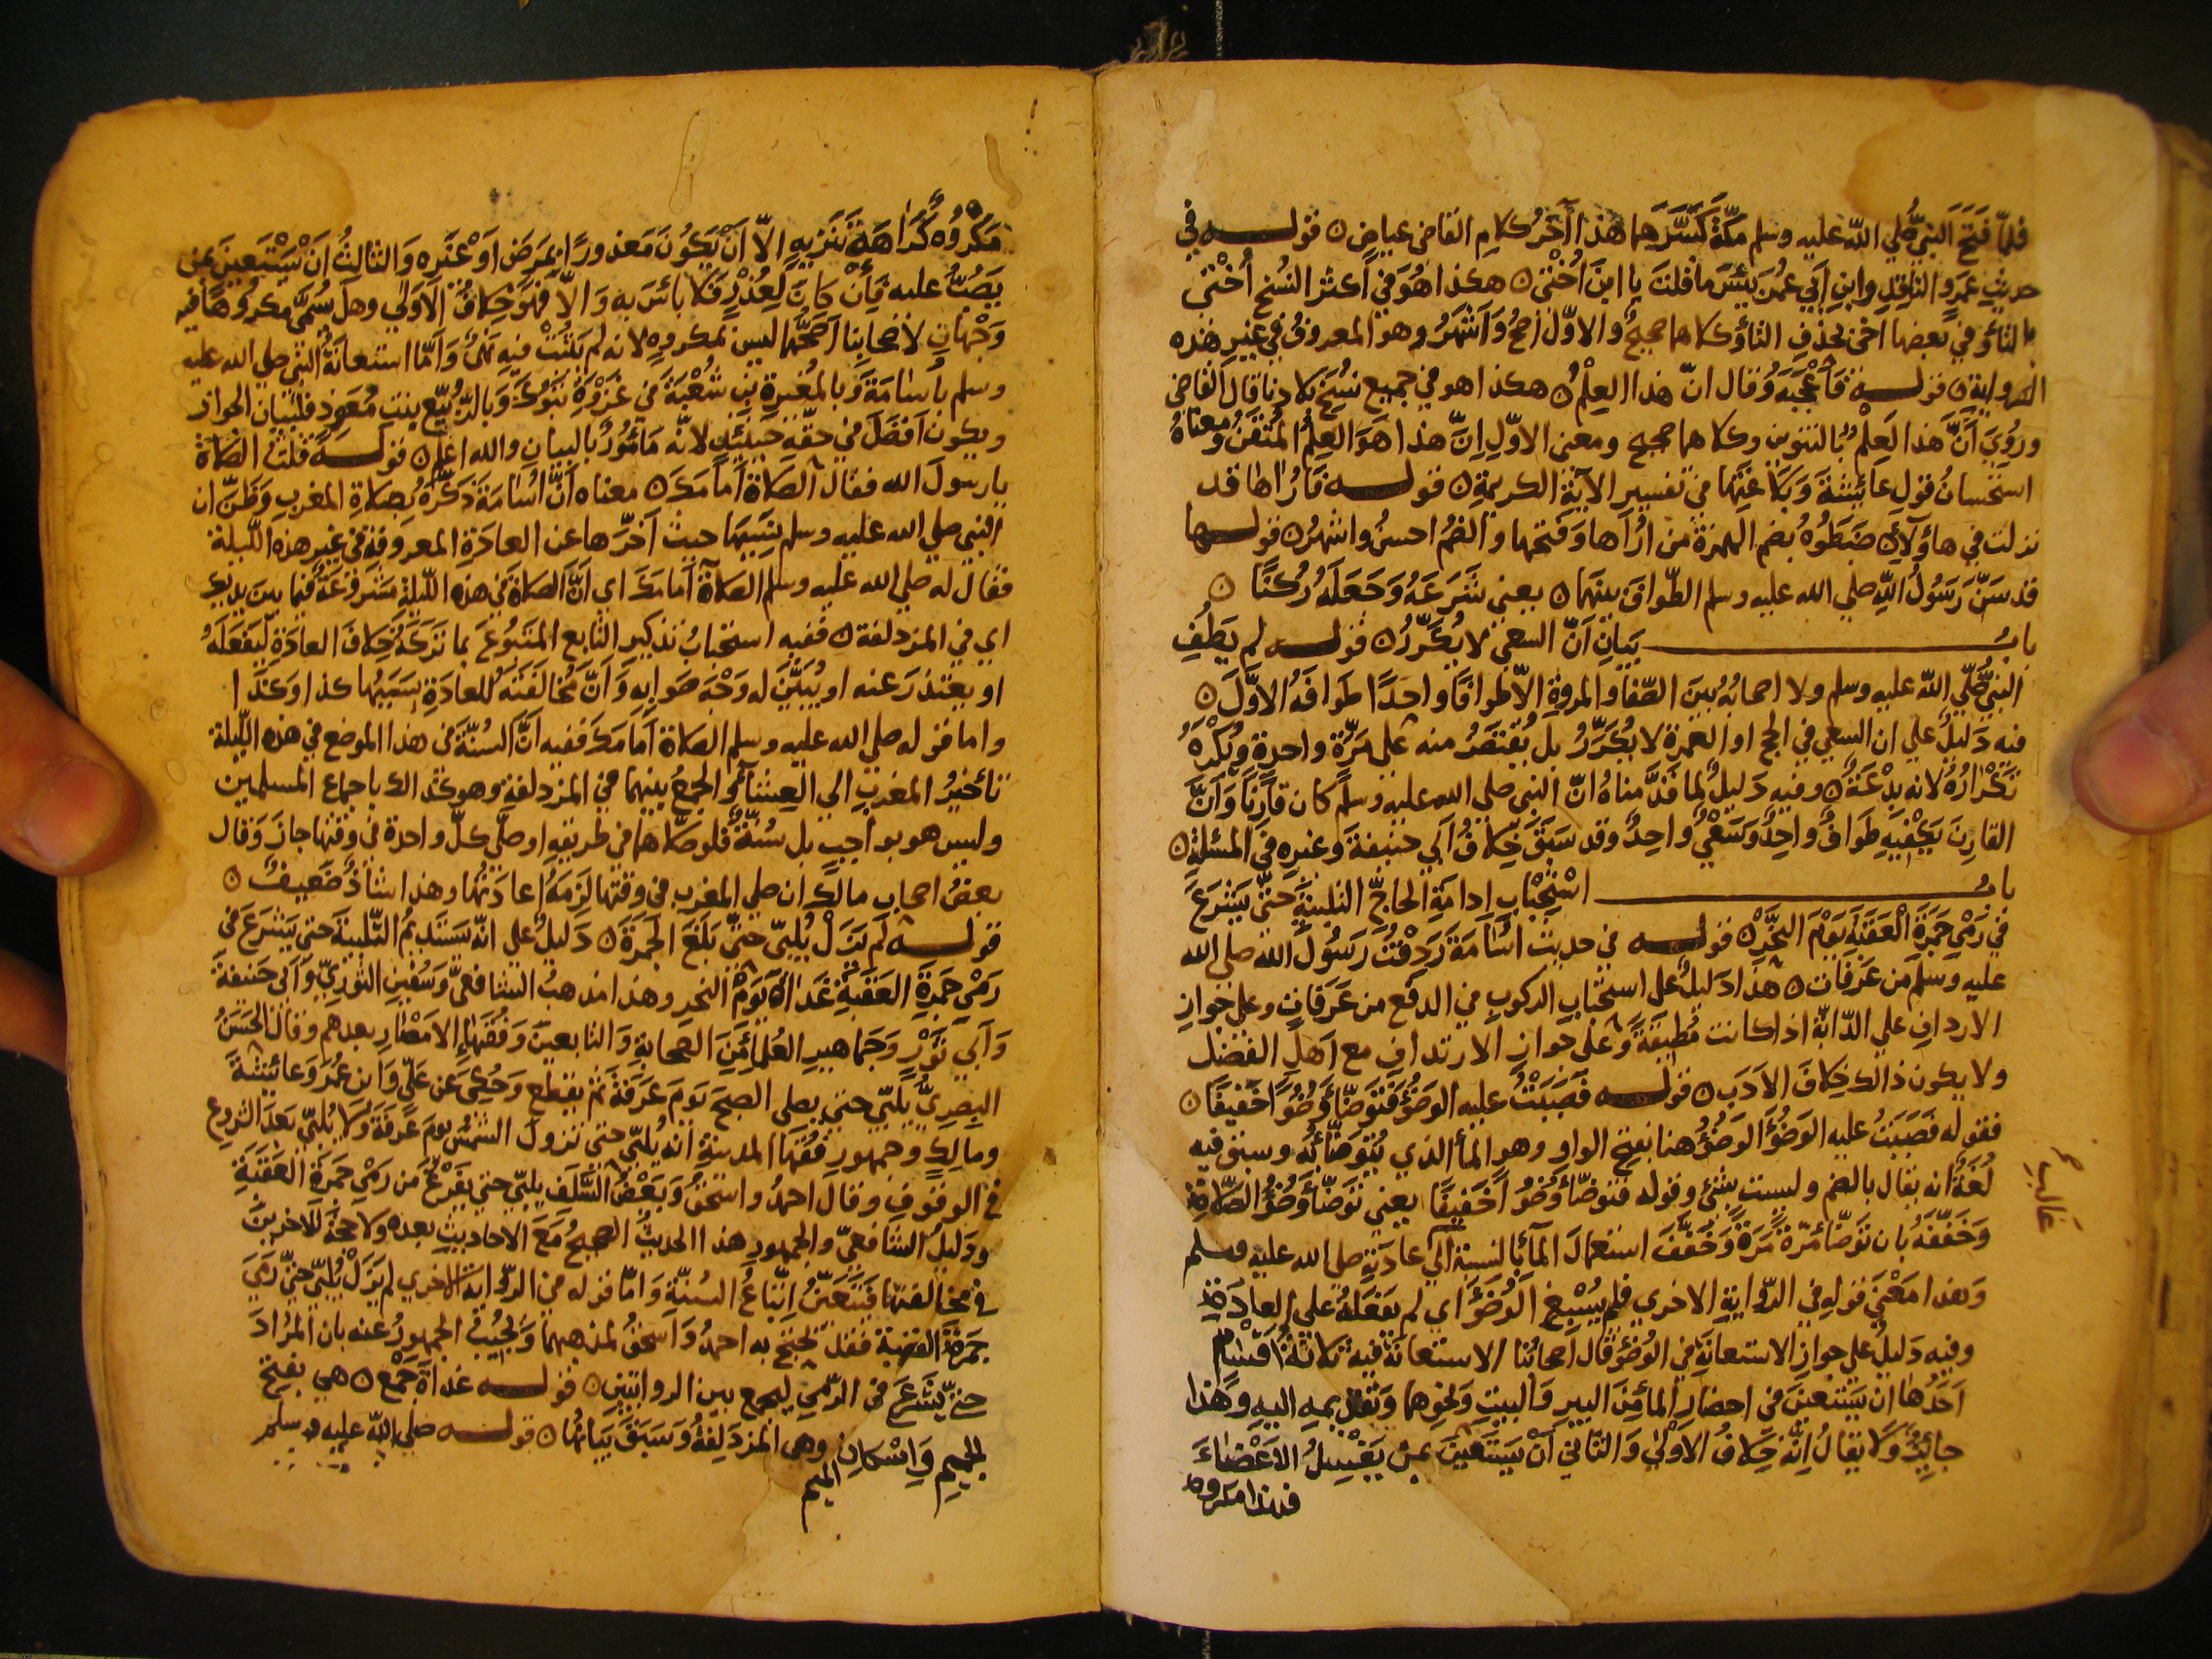 فلمّا فَتَحَ النبيُّ صلي اللّه عليه وسلم مكّةَ كسّرهما هذا آخر كلامِ القاضي عياضٍ ٥ قولـــه في
حديثِ عمرٍو الناقدِ وابنِ ابي عُمَرَ بئسَ ما قلتَ يا ابنَ اُخْتى ٥ هكذا هُوَ في اكثر النُسَخِ اُخْتى
بالتاءِ وفي بعضها اخى بحذفِ التاءِ وكلاهما صحيحٌ والاوّل اصحُّ وَاَشْهَرُ وهو المعروفُ في غيرِ هذه
الرواية ٥ قولـــه فَاَعْجَبَهُ وقال انّ هذا العِلْمُ ٥ هكذا هو في جميع نُسَخِ بلادنا قال القاضي
ورُوِيَ اَنَّ هذا لَعِلْمٌ بالتنوين وكلاهما صحيح ومعنى الاوّلِ اِنّ هذا هُوَ العِلْمُ المُتْقَنُ ومعناهُ
استحسانُ قولِ عائِشةَ وبلاغتها في تفسيرِ الآيةِ الكريمةِ ٥ قولـــه فاُراها قد
نزلت في هاؤلآءِ ٥ ضبَطُوهُ بضمِ الهمزةِ من اُرَاها وَفَتحها والضمُ احسنُ واشهرُ ٥ قولـــها
قد سَنَّ رَسُولُ اللّهِ صلي الله عليه وسلم الطّوافَ بينَهما ٥ يعني شَرَعَهُ وَجَعَلَهُ رُكنًا ٥
بابُــــ بَيَانِ اَنّ السعي لا يُكَرَّرُ ٥ قولـــه لم يَطُفِ
النبيُّ صَلّي اللّه عليه وسلم ولا اصحابُه بينَ الصّفا والمروةِ الاّ طوافًا واحِدًا طَوافَهُ الاوّلَ ٥
فيه دَلِيلٌ علي ان السعي في الحج او العمرة لا يُكرّرُ بل يُقتصَرُ منه علي مَرّةٍ واحدةٍ ويُكْرَهُ
تَكْرارُهُ لانه بِدْعَةٌ ٥ وفيه دَليلٌ لما قدَّمناهُ انّ النبي صلي الله عليه وسلّم كان قارِنًا وَاَنَّ
القارِنَ يَكْفِيهِ طَوافٌ واحِدٌ وسَعْيٌ واحِدٌ وقد سَبَقَ خلافُ ابي حنيفةَ وغيرِه في المسئلةِ ٥
بابُــــ اسْتِحْبابِ ادامَةِ الحاجِّ التلبيةَ حتّى يَشْرَعَ
في رَمْيِ جَمرَةِ العَقَبةِ يَوْمَ النَحْرِ ٥ قولـــه في حديث اُسَامةَ رَدِفْتُ رَسُولَ اللّه صلي الله
عليه وسلم من عَرَفات ٥ هذا دَليلٌ علي استحْبابِ الركوبِ في الدفع من عَرَفاتٍ وعلي جوازِ
الاردافِ علي الدّابّةِ اذا كانت مُطِيقةً وعلى جوازِ الارتدافِ مع اهلِ الفضل
ولا يكون ذالك خلافَ الادَبِ ٥ قولـــه فصَبَبْتُ عليه الوَضُوءَ فتَوَضَّأَ وُضُوءًا خَفيفًا ٥
فقوله فصَبَبتُ عليه الوَضُوءَ الوَضُوءُ هنا بفتح الواو وهو الماءُ الذي يُتَوضّأُ به وسبق فيه
لُغةٌ انه يقال بالضم وليست بشئٍ وقوله فتوضّأ وُضُوءًا خفيفًا يعني تَوَضّأ وُضُوءَ الصّلاةِ
وَخَفّفَهُ بان توضّأ مرّةً مَرّةً وَخَفّفَ استعمالَ المآءِ بالنسبةِ الى عادَتِه صلي الله عليه وسلم
وهذا مَعْنَي قولِه في الرّوايةِ الاخري فلم يُسْبِغِ الوُضُوءَ اي لم يفعَلْهُ على العادَةِ
وفيه دَليلٌ علي جوازِ الاستعانَةِ في الوُضُوءِ قال اصحابُنا الاستعانَةُ فيه ثلاثةُ اَقْسامٍ
اَحَدُها ان يَستعينَ في احضارِ الماءِ مِنَ البيرِ والبيتِ ونحوِهما وتقديمِه اليهِ وَهَذا
جائِزٌ وَلا يقالُ اِنَّه خِلافُ الاَوْلي وَالثاني اَنْ يَستَعينَ بمن يَغْسِلُ الاَعْضاءَ
فهذا مكروه
مَكْرُوهٌ كراهَةَ تَنزيهٍ الاّ اَنْ يَكُونَ مَعذورًا بمَرَضٍ اَوْ غَيرِه وَالثالثُ انْ يَسْتَعينَ بمَن
يَصُبُّ عليه فَاِنْ كانَ لعُذرٍ فلا باْسَ بهِ وَالاّ فهو خِلافُ الاَولى وهلْ يُسَمَّى مكروهًا فيه
وَجْهانِ لاصحابِنا اصَحُّها ليس بمكروهٍ لانه لم يَثْبُتْ فيه نهىٌ وَاَمّا استعانةُ النبي صلي الله عليه
وسلم باُسامَةَ وَبالمُغيرةِ بن شُعْبَةَ في غَزْوَةِ تَبُوكَ وَبالرُّبَيّع بنتِ مُعَوذٍ فلبَيانِ الجواز
ويكون اَفضَلَ في حقّه حينئذٍ لانّه مَامُورٌ بالبيانِ والله اعلم ٥ قولـــه قُلْتُ الصّلاةَ
يا رسولَ الله فقال الصّلاة اَمامَكَ ٥ معناه اَنَّ اُسَامَةَ ذَكّرَهُ بصلاةِ المغربِ وَظَنّ ان
النبي صلي الله عليه وسلم نَسِيَها حيثُ اَخّرَها عن العادَةِ المعروفةِ في غيرِ هذه اللّيلة
فقال له صلي الله عليه وسلم الصلاة اَمامَكَ اي اَنَّ الصلاةَ في هذه اللّيلةِ مَشرُوعَةٌ فيما بينَ يديك
اي في المزدلفة ٥ ففيه استحبابُ تذكيرِ التّابع المتبُوعَ بما تركَهُ خِلافَ العادَةِ ليَفعَلَهُ
او يعتذرَ عنه او يُبَيّنَ له وَجْهَ صَوابِهِ وَاَنَّ مُخالَفَتَهُ للعادَةِ بسَبَبِها كذا وكذا
واما قوله صلي الله عليه وسلم الصّلاة اَمامَك ففيه اَنّ السُنّةَ في هذا الموضع في هذه اللّيلة
تأخيرُ المغربِ الي العِشاءِ والجمعُ بينهما في المزدلفةِ وهو كذالك باجماعِ المسلمين
وليس هو بواجِبٍ بل سُنّةٌ فلو صلّاهما في طريقهِ او صلّى كلّ واحدة في وقتها جازَ وَقال
بعضُ اصحابِ مالكٍ ان صلي المغرب في وقتها لَزِمَهُ اعادَتُها وهذا شاذٌ ضَعِيفٌ ٥
قولـــه لم يَزَلْ يُلَبّي حتّى بَلَغَ الجمرَةَ ٥ دَليلٌ على انّه يَستَديمُ التّلبيةَ حتى يَشْرَعَ في
رَمْيِ جَمرَةِ العَقَبَةِ غَداةَ يَوْمِ النحر وهذا مذهبُ الشافعيِّ وسُفينَ الثّورِيِّ وَاَبي حَنيفَةَ
وَاَبي ثَوْرٍ وَجَماهيرِ العُلَماءِ مِنَ الصحابةِ وَالتابعينَ وَفُقَهَاءِ الامْصَارِ بعدهم وقال الحَسَنُ
البصرِيُّ يُلَبّي حتى يصلي الصبحَ يومَ عَرَفَةَ ثم يقطع وَحُكِيَ عَن عَلّيٍ وَابنِ عُمَرَ وَعائِشَةَ
ومالكٍ وجمهورِ فُقَهاءِ المدينةِ انه يُلَبّي حتى تزولَ الشمسُ يومَ عَرَفةَ وَلا يُلَبّي بعدَ الشروع
في الوقوفِ وقال احمدُ واسْحقُ وَبعْضُ السَّلَفِ يلبّي حتى يَفرُغَ مِن رَمْيِ جَمرَةِ العَقَبَةِ
ودَليلُ الشافعيِّ والجمهورِ هذا الحديثُ الصحيحُ مَعَ الاحاديثِ بعدهُ ولا حجّةَ للاخرينَ
في مخالفتها فَيَتَعَيّنُ اِتّباعُ السُنّةِ وَامّا قوله في الرّوايةِ الاخري لم يَزَلْ يُلَبّي حتّى رَمَى
جمرَةَ العقبة فقد يحتج به احمدُ وَاسحقُ لمذهبهما وَيُجيبُ الجمهورُ عنه بان المُرادَ
حتّى يَشْرَعَ في الرّمي ليجمع بين الروايتين ٥ قولـــه غداةَ جَمْعٍ ٥ هي بفتح
الجيمِ وَاسْكانِ الميم وهي المزدَلِفةُ وَسَبَقَ بَيانُها ٥ قولـــه صلي اللّه عليه وسلم
غالبا